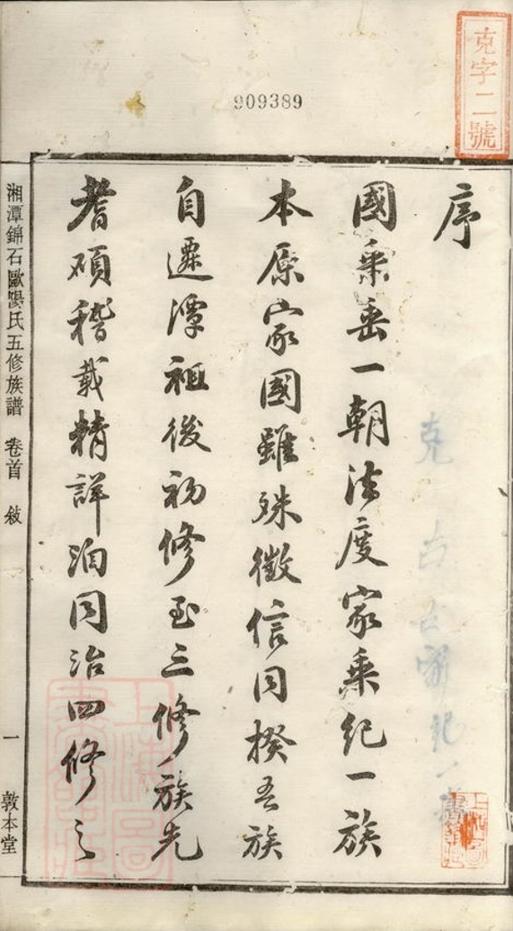 909389
克字二號
序
國乘垂一朝法度家乘紀一族
本原家國雖殊徵信同揆吾族
自遷潭祖後初修至三修族先
耆碩稽載精詳洎同治四修之
湘潭錦石歐陽氏五修族譜 卷首 敘 一 敦本堂